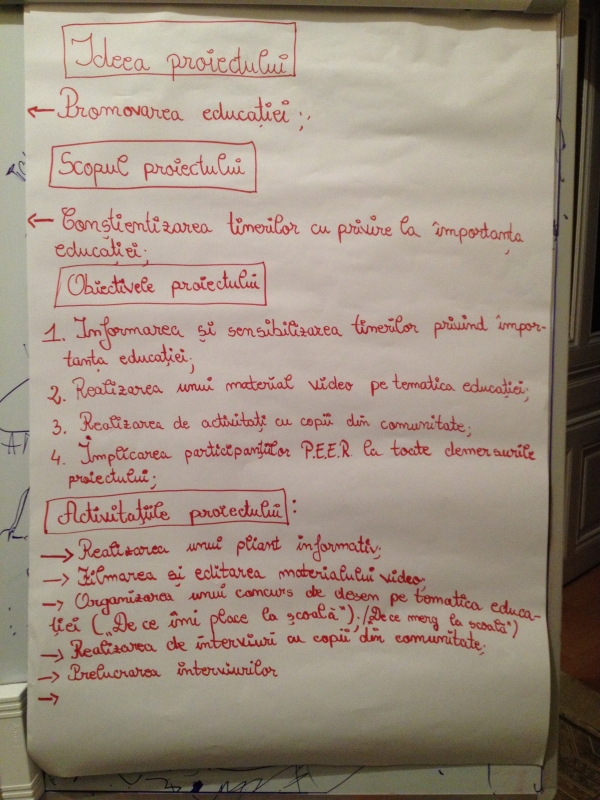 Ideea proiectului
← Promovarea educației ;.
Scopul proiectului
← Conștientizarea tinerilor cu privire la importanța
educației;
Obiectivele proiectului
1. Informarea și sensibilizarea tinerilor privind impor-
tanța educației;
2. Realizarea unui material video pe tematica educației;
3. Realizarea de activitați cu copii din comunitate;
4. Implicarea participanților P.E.E.R. la toate demersurile
proiectului;
Activitațiile proiectului :
→ Realizarea unui pliant informativ;
→ Filmarea și editarea materialului video;
→ Organizarea unui concurs de desen pe tematica educa-
ției („De ce îmi place la școală”); /„De ce merg la școală”)
→ Realizarea de interviuri cu copii din comunitate;
→ Prelucrarea interviurilor
→